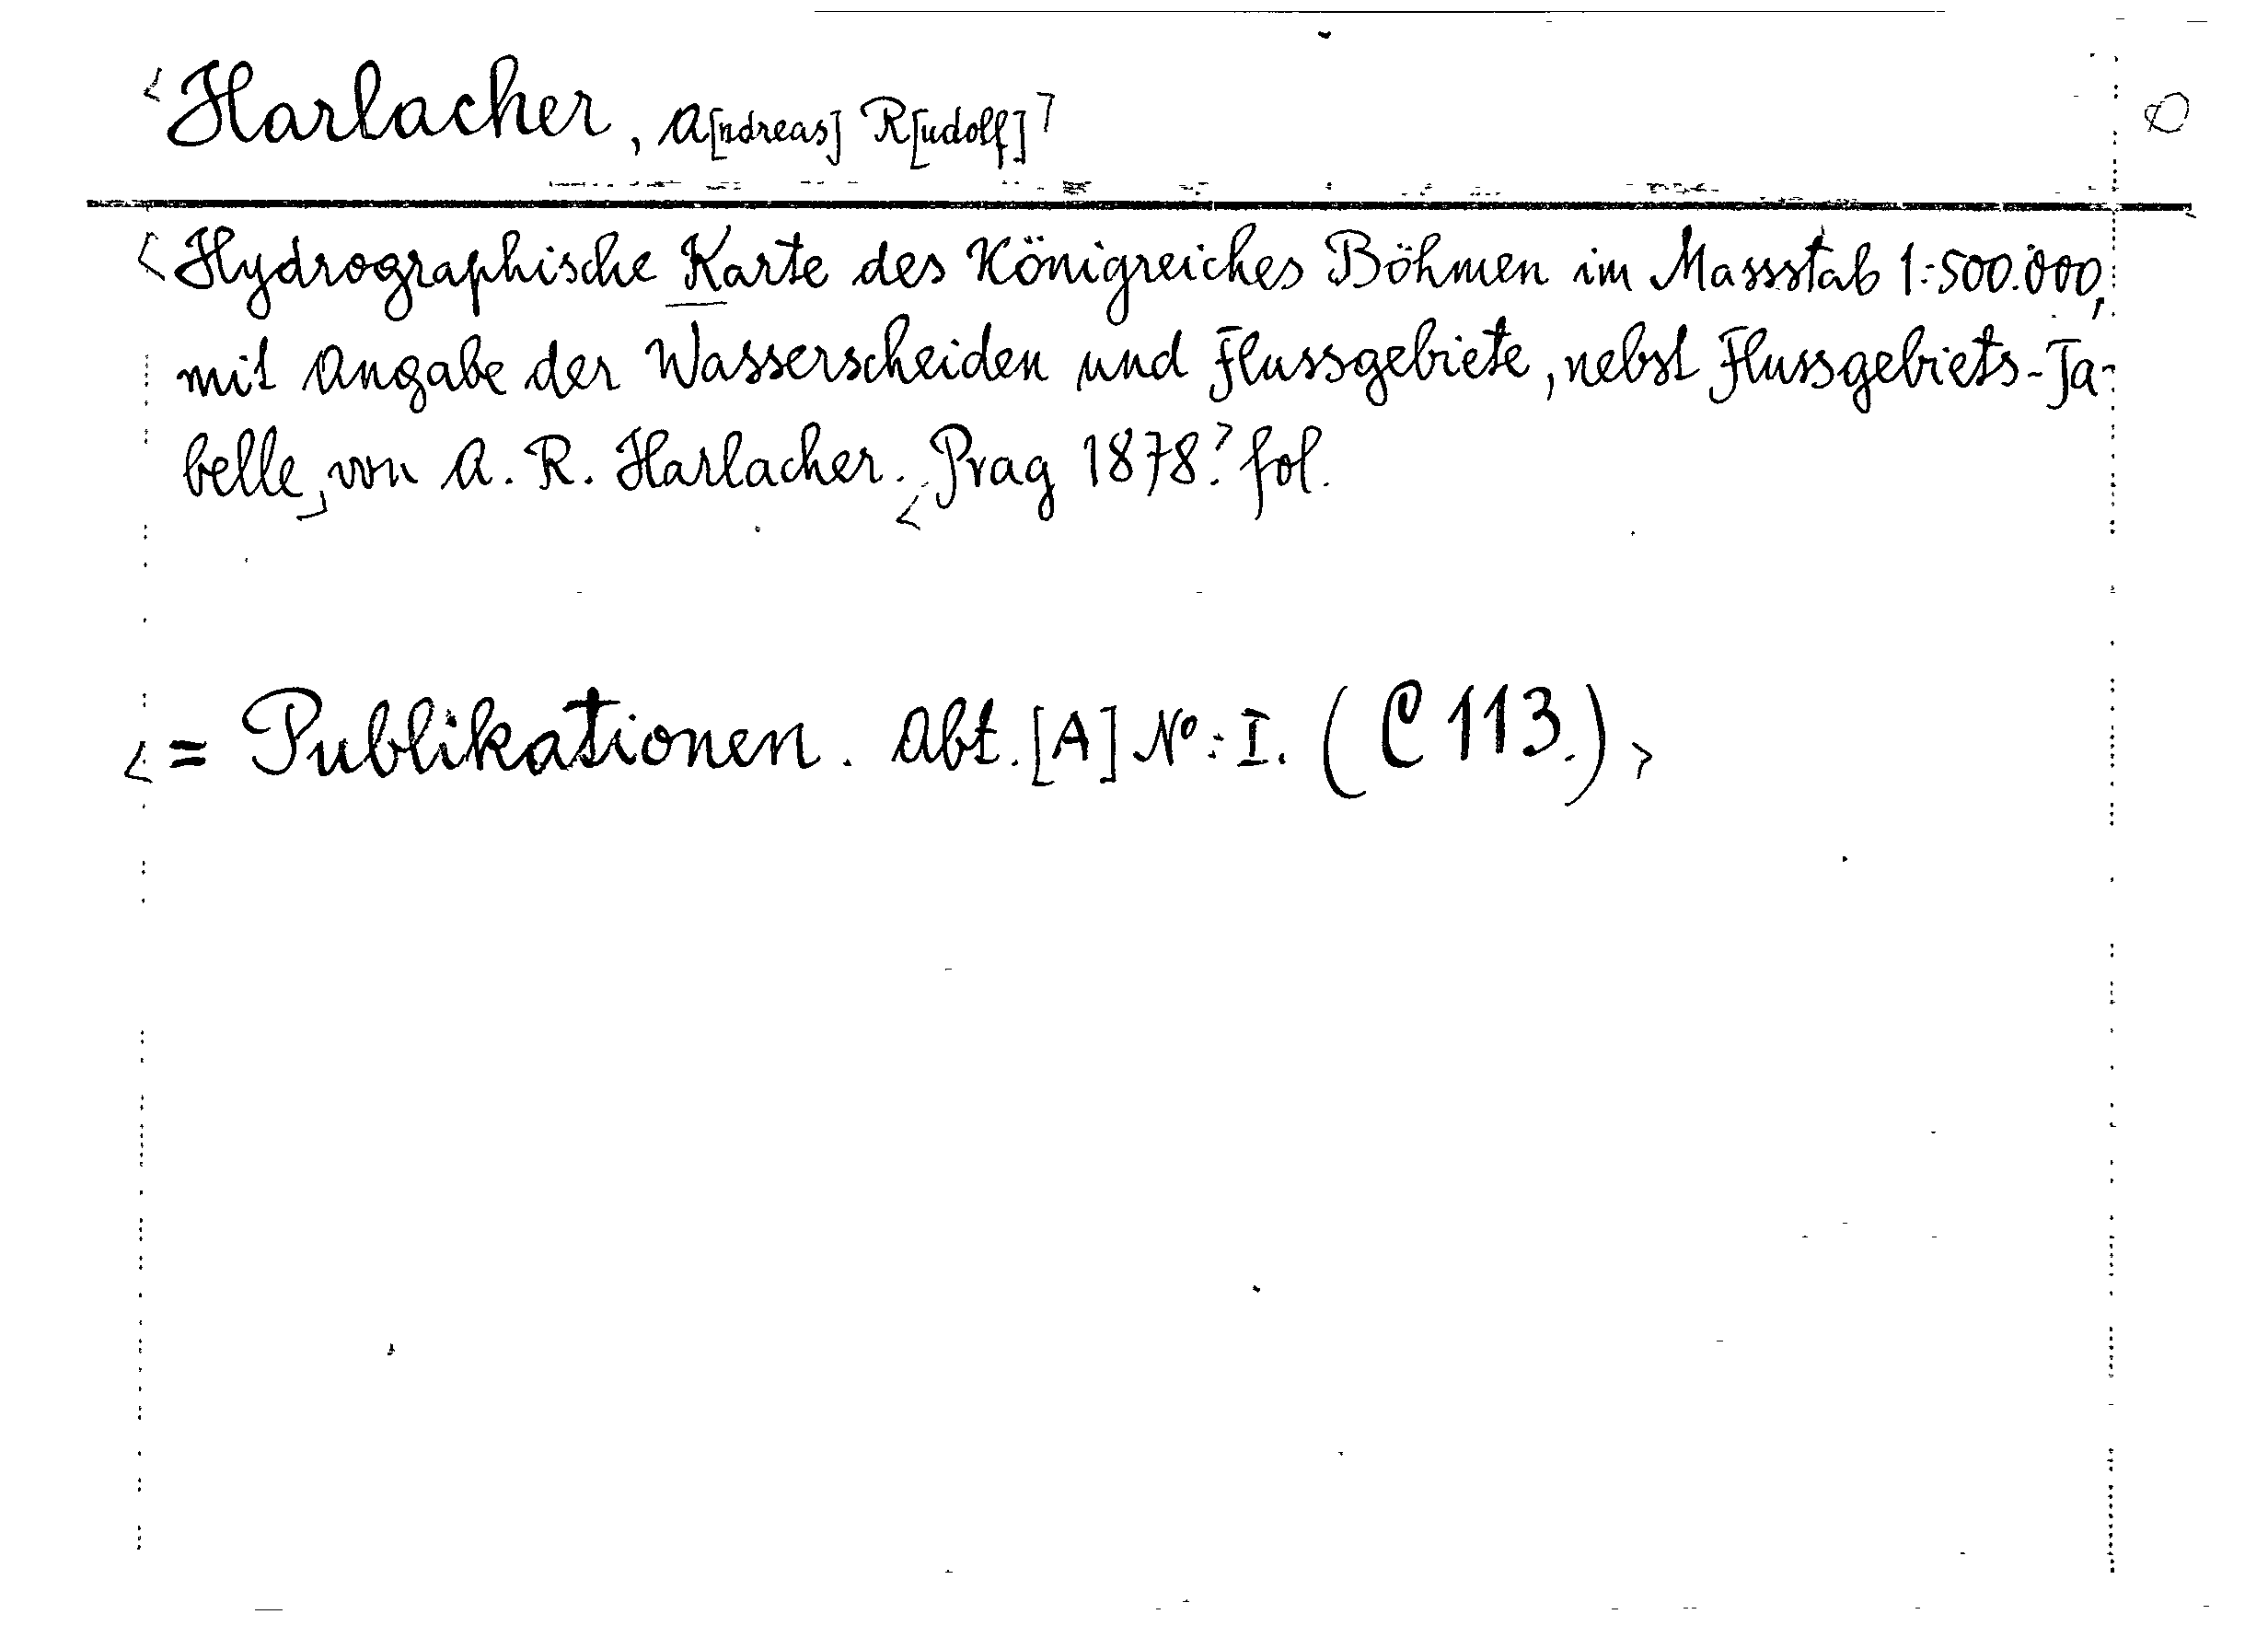 Harlacher, A[ndreas] R[udolf]
Hydrographische Karte des Königreiches Böhmen im Massstab 1:500.000,
mit Angabe der Wasserscheiden und Flussgebiete, nebst Flussgebiets-Ta-
belle, von A. R. Harlacher. Prag 1878. fol.
= Publikationen. Abt. [A] No: I. (C 113.)